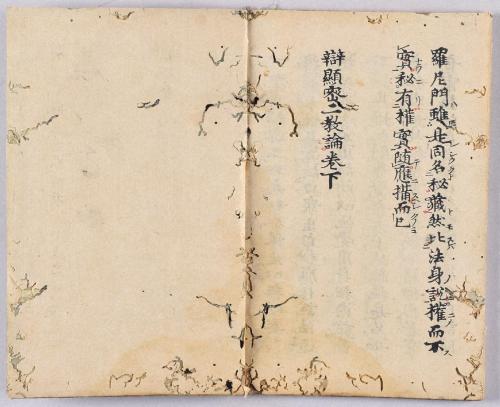 羅尼門雖並同名秘藏然比法身說權而不
實秘有權實随應攝而已
辯顯密二教論卷下